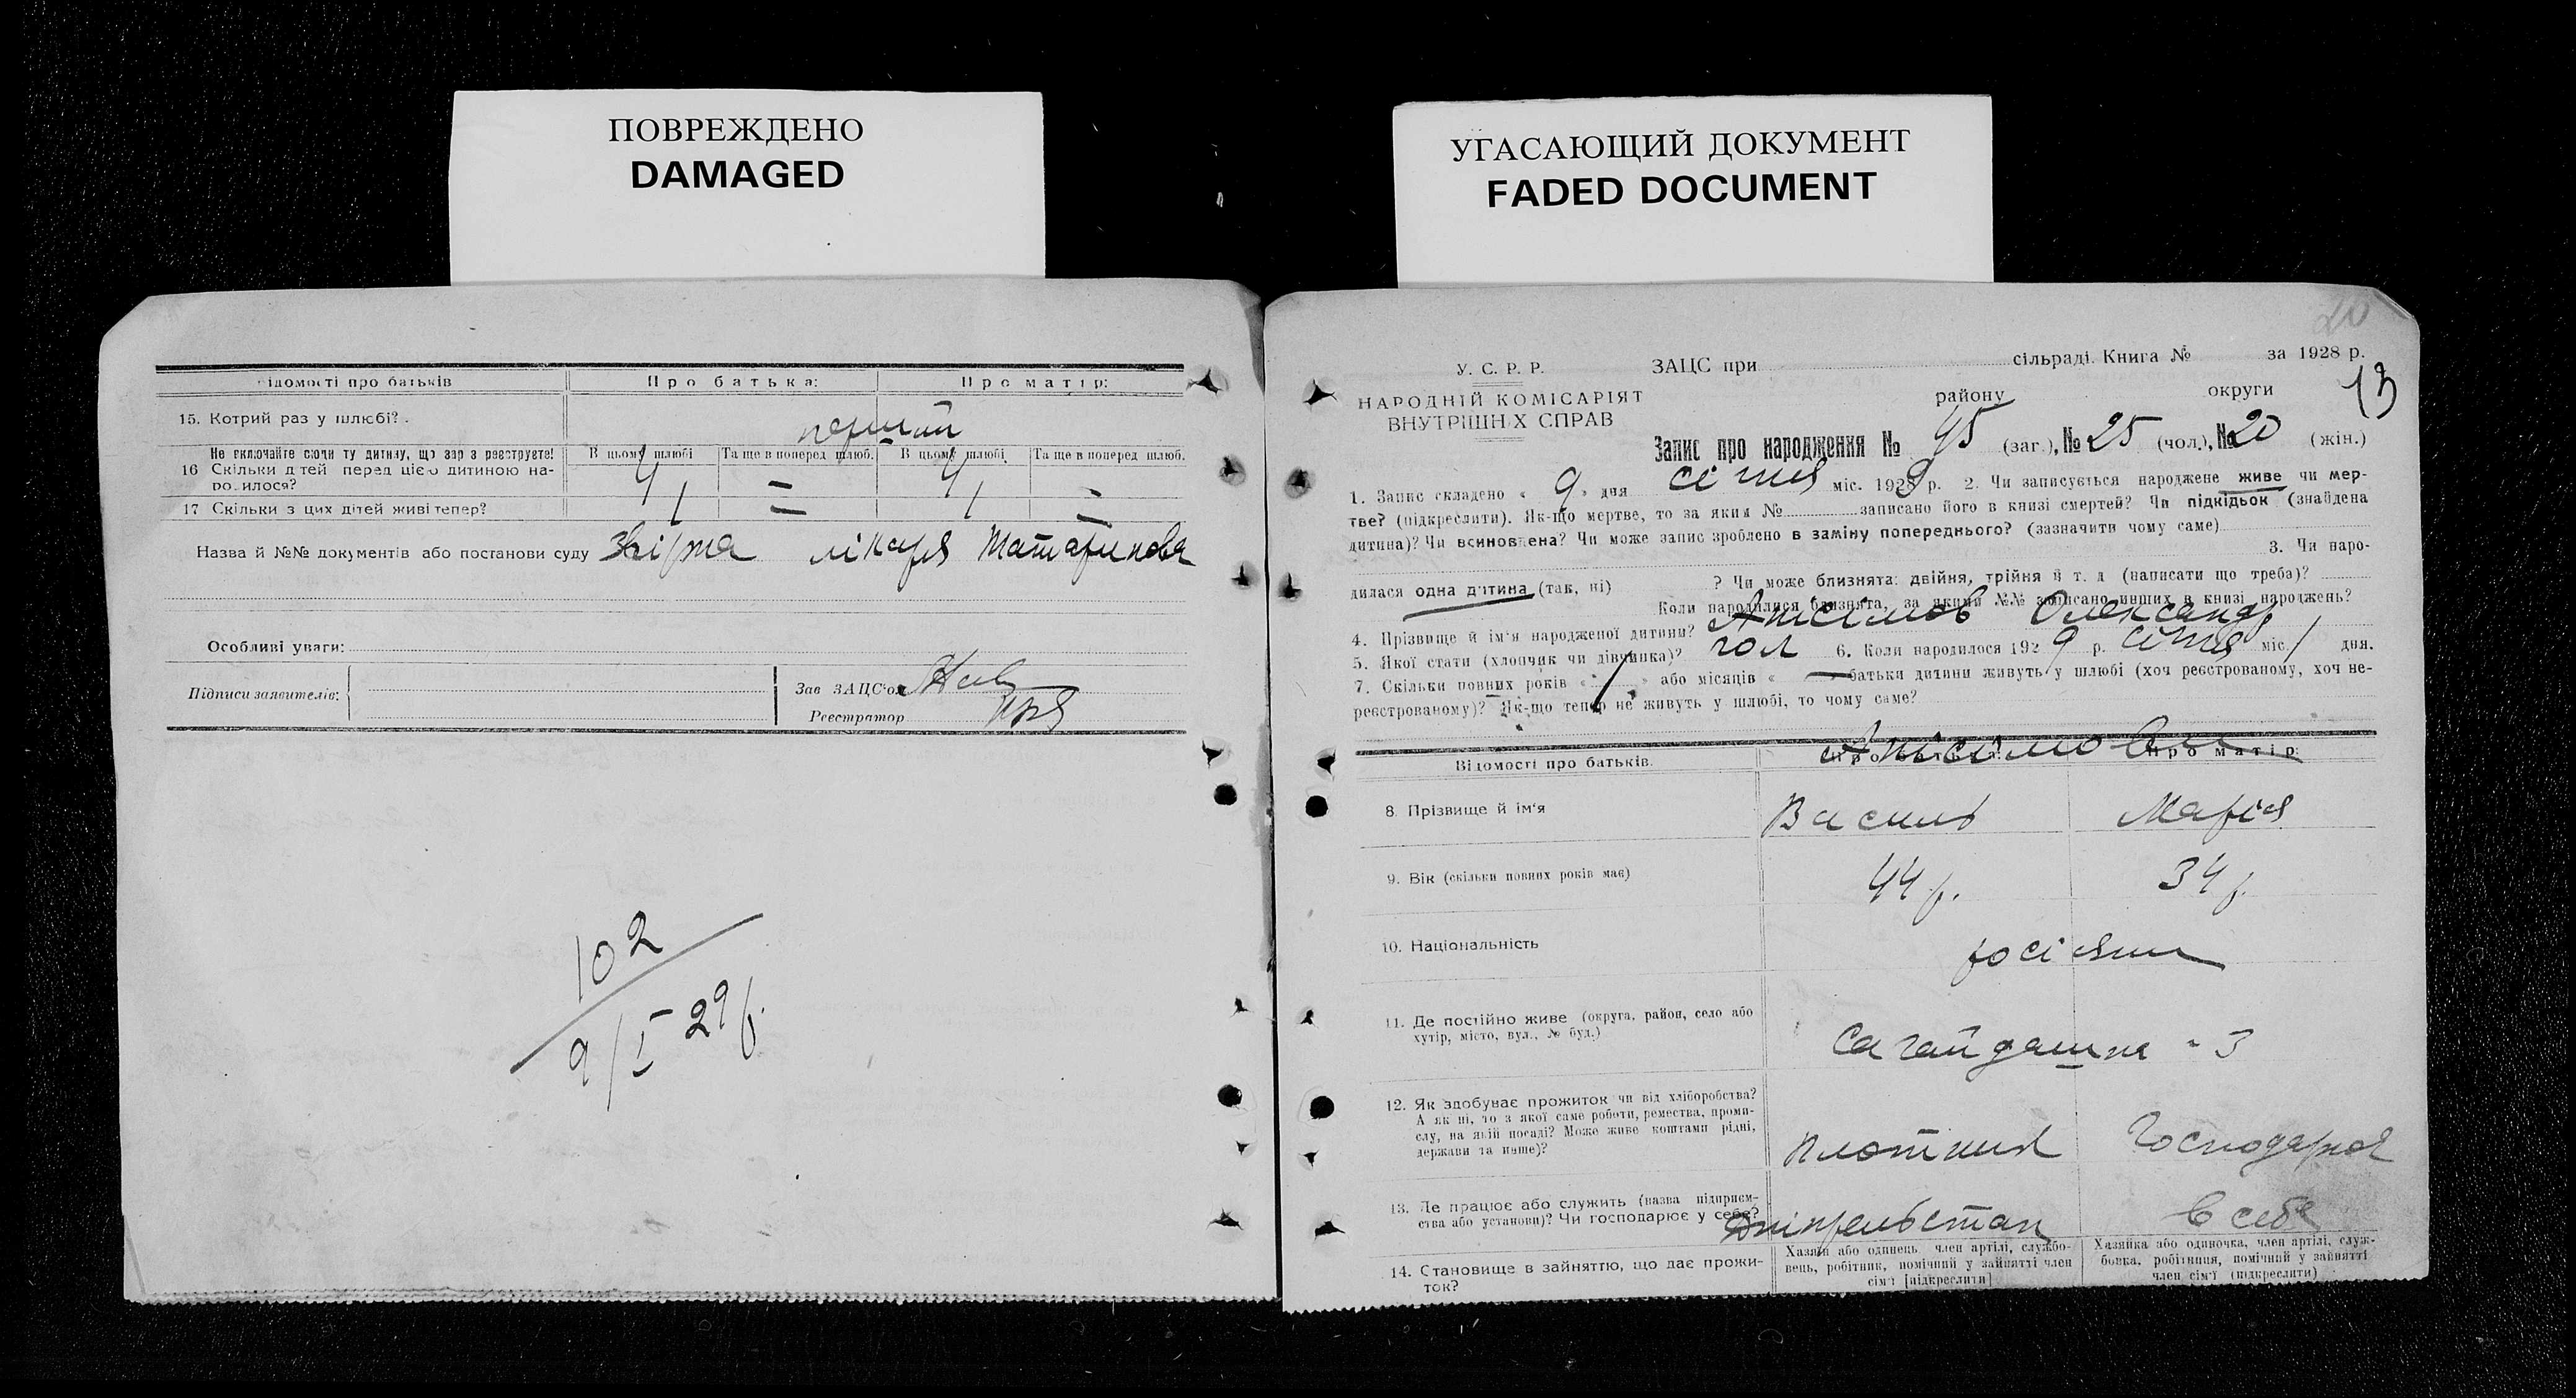 ПОВРЕЖДЕНО
DAMAGED
УГАСАЮЩИЙ ДОКУМЕНТ
FADED DOCUMENT
ідомості про батьків Про батька: Про матір:
15. Котрий раз у шлюбі? перший
Не включайте сюди ту дитину, що зараз реєструєте! В цьому шлюбі Та ще в поперед шлюб. В цьому шлюбі Та ще в поперед шлюб.
16 Скільки дітей перед цією дитиною на-
родилося? 4 = 4 -
17 Скільки з цих дітей живі тепер? 1 = 1 =
Назва й №№ документів або постанови суду лікаря Татаринова
Особливі уваги:
Підписи заявителів: Зав ЗАЦС'ом
Реєстратор
102
9/I 29 р.
20
У. С. Р. Р. ЗАЦС при сільраді. Книга № за 1928 р.
НАРОДНІЙ КОМІСАРІЯТ району округи 13
ВНУТРІШНІХ СПРАВ
Запис про народження № 45 (заг.), № 25 (чол.), № 20 (жін.)
1. Запис складено « 9 » дня січня міс. 1929 р. 2. Чи записується народжене живе чи мер-
тве? (підкреслити). Як-що мертве, то за яким № записано його в книзі смертей? Чи підкідьок (знайдена
дитина)? Чи всиновлена? Чи може запис зроблено в заміну попереднього? (зазначити чому саме)
3. Чи наро-
дилася одна дитина (так, ні) ? Чи може близнята: двійня, трійня й т. д (написати що треба)?
Коли народилися близнята, за якими №№ записано инших в книзі народжень?
4. Прізвище й ім'я народженої дитини? Анісімов Олександр
5. Якої стати (хлопчик чи дівчинка)? чол 6. Коли народилося 1929 р. січня міс 1 дня.
7. Скільки повних років « 1 » або місяців « — батьки дитини живуть у шлюбі (хоч реєстрованому, хоч не-
реєстрованому)? Як-що тепер не живуть у шлюбі, то чому саме?
Відомості про батьків. Про батька: Анісімови Про матір:
8. Прізвище й ім'я Василь Марія
9. Вік (скільки повних років має) 44 р. 34 р.
10. Національність росіяни
11. Де постійно живе (округа, район, село або
хутір, місто, вул., № буд.) 3
12. Як здобуває прожиток чи від хліборобства?
А як ні, то з якої саме роботи, ремества, проми-
слу, на якій посаді? Може живе коштами рідні,
держави та инше)? плотник Господарка
13. Де працює або служить (назва підприєм-
ства або установи)? Чи господарює у себе? Дніпрельстан в себе
14. Становище в зайняттю, що дає прожи-
ток?
Хазяїн або одинець член артілі, службо-
вець, робітник, помічний у зайнятті член
сім'ї [підкреслити]
Хазяйка або одиночка, член артілі, служ-
бовка, робітниця, помічний у зайнятті
член сім'ї (підкреслити)